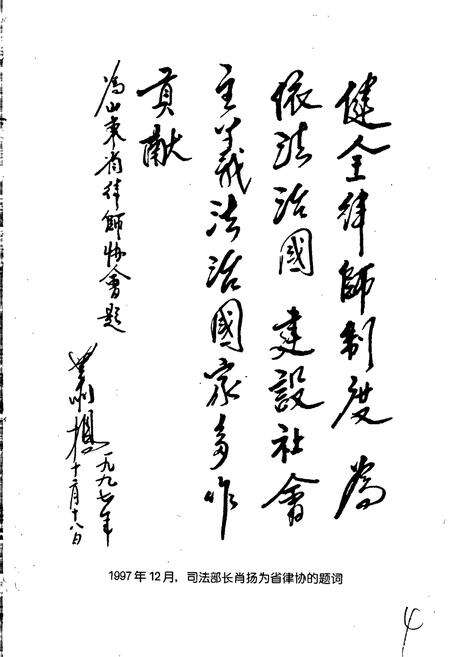 健全律師制度為
依法治國建設社會
主義法治國家多作
貢獻
為山東省律師协會題
蕭揚
一九九七年
十二月十八日
1997年12月，司法部长肖扬为省律协的题词
4